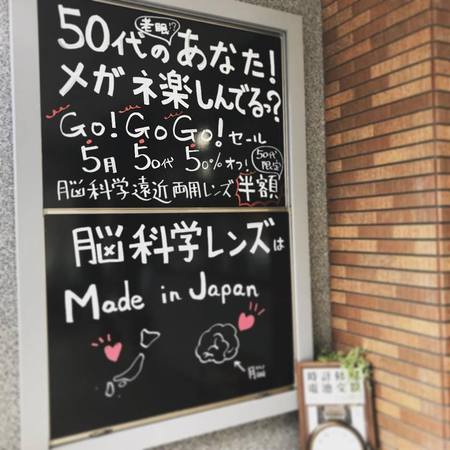 老眼!?
50代のあなた!
メガネ楽しんでるぅ?
Go! Go Go! セール
5月 50代 50%オフ! 50代限定
脳科学遠近両用レンズ 半額
脳科学レンズは
Made in Japan
脳
電池交換